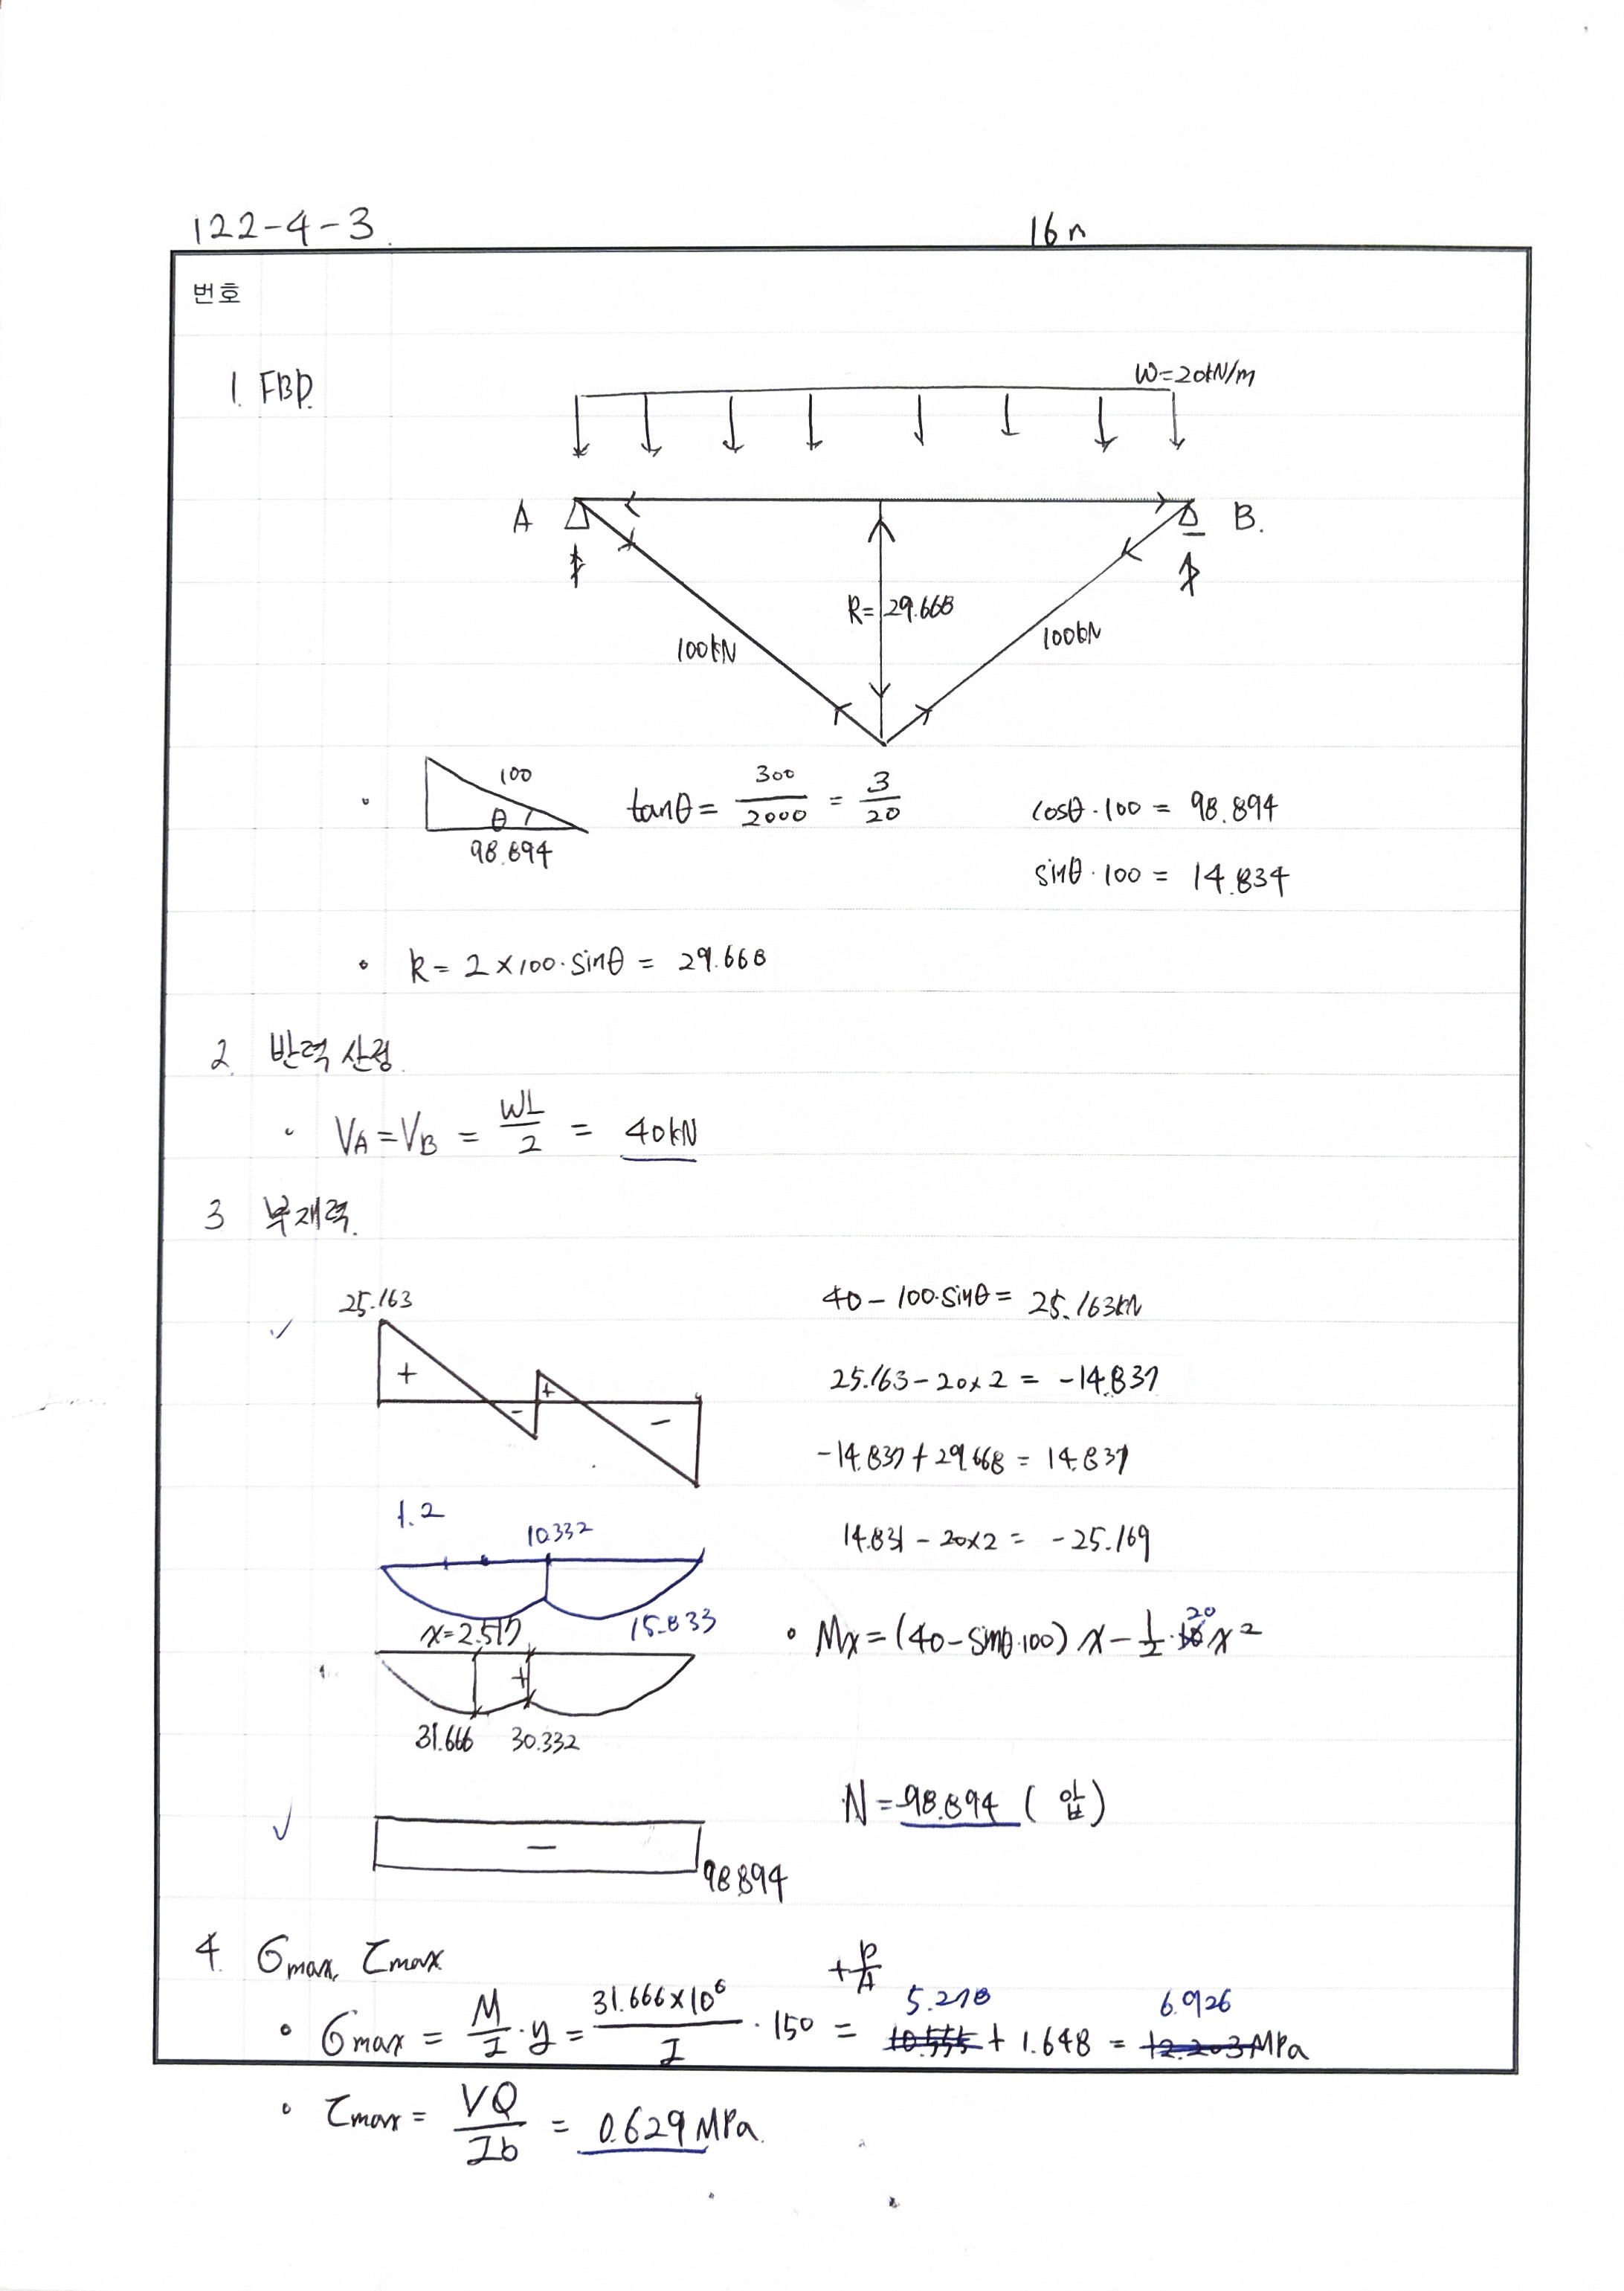 122-4-3.
16n
번호
1. FBD.
W=20kN/m
A
B.
R= 29.668
100kN
100kN
100
θ
98.894
tanθ = 300/2000 = 3/20
cosθ·100 = 98.894
sinθ·100 = 14.834
R = 2×100·sinθ = 29.668
2. 반력 산정.
VA = VB = WL/2 = 40kN
3 부재력.
25.163
40 - 100·sinθ = 25.163kN
+
-
+
-
25.163 - 20×2 = -14.837
-14.837 + 29.668 = 14.831
1.2
10.332
14.831 - 20×2 = -25.169
15.833
x=2.517
Mx = (40 - sinθ·100) x - 1/2·20x²
+
31.666
30.332
N = -98.894 ( 압 )
-
98.894
4. σmax, τmax
σmax = M/I·y = 31.666×10⁶/I · 150 + P/A = 10.555 5.278 + 1.648 = 12.203 6.926 MPa
τmax = VQ/Ib = 0.629 MPa.